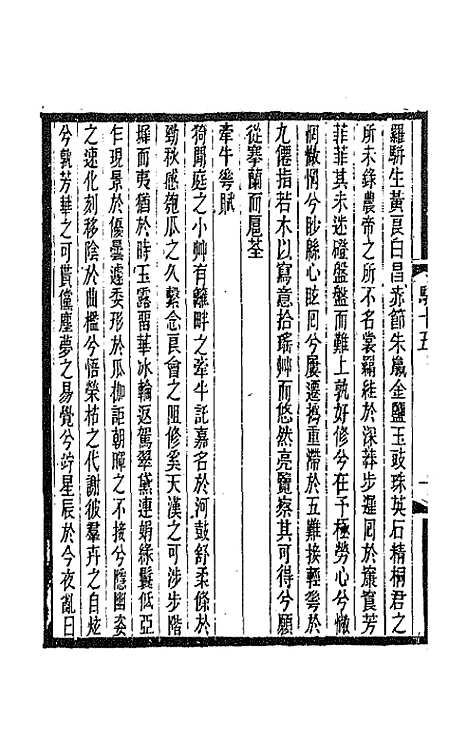 羅駢生黃長白昌赤節朱歲金鹽玉豉珠英石精桐君之
所未錄農帝之所不名裳羂絓於深莽步邅囘於窾窅芳
菲菲其未迷磴盤盤而難上孰好修兮在予極勞心兮憿
惘憿惘兮眇緜心眩囘兮屢遷撝重滯於五難接輕舉於
九僊指若木以寫意拾瑤艸而悠然亮覽察其可得兮願
從搴蘭而扈荃
牽牛蕚賦
猗閒庭之小艸有籬畔之牽牛託嘉名於河鼓舒柔條於
勁秋感匏瓜之久繫念良會之阻修奚天漢之可涉步階
墀而夷猶於時玉露畱華冰輪返駕翠黛連娟綠鬟低亞
乍現景於優曇遽委形於瓜桞詎朝暉之不接兮隱幽姿
之速化刻移陰於曲檻兮悟榮枯之代謝彼羣卉之自炫
兮孰芳華之可貰儻塵夢之易覺兮竚星辰於今夜亂曰